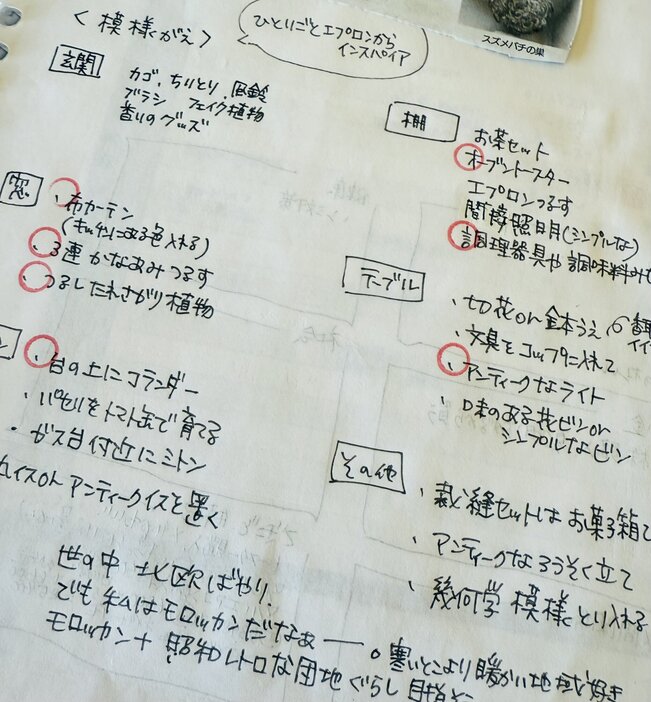 <模様がえ>
ひとりごとエプロンから
インスパイア
スズメバチの巣
玄関
カゴ、ちりとり、風鈴
ブラシ フェイク植物
香りのグッズ
窓
・布カーテン
(キッチンにある色入れる)
・3連 かなあみ つるす
・つるし たれさがり 植物
・台の上にコランダー
・パセリをトマト缶で育てる
・ガス台付近にミトン
丸イスor アンティークイスを置く
棚
お茶セット
オーブントースター
エプロンつるす
間接照明(シンプルな)
調理器具や調味料みせ
テーブル
・切花or 鉢うえ
・文具をコップに入れて
・アンティークなライト
・味のある花ビンor
シンプルなビン
その他
・裁縫セットはお菓子箱で
・アンティークなろうそく立て
・幾何学模様とり入れる
世の中 北欧ばやり、
でも 私はモロッカンだなぁー。寒いとこより暖かい地域が好き
モロッカン+昭和レトロな団地ぐらし 目指そ